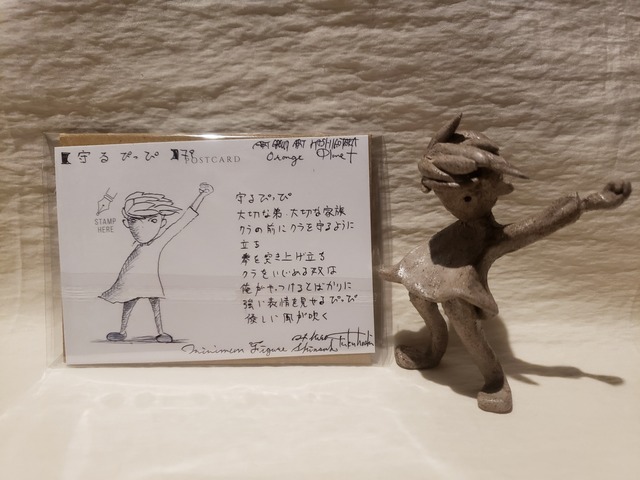 【守る ぴっぴ】
POSTCARD
Orange Planet
STAMP
HERE
守るぴっぴ
大切な弟 大切な家族
クラの前にクラを守るように
立つ
拳を突き上げ立つ
クラをいじめる奴な
俺がやっつけるとばかりに
強い表情を見せるぴっぴ
優しい風が吹く
minimum Figure